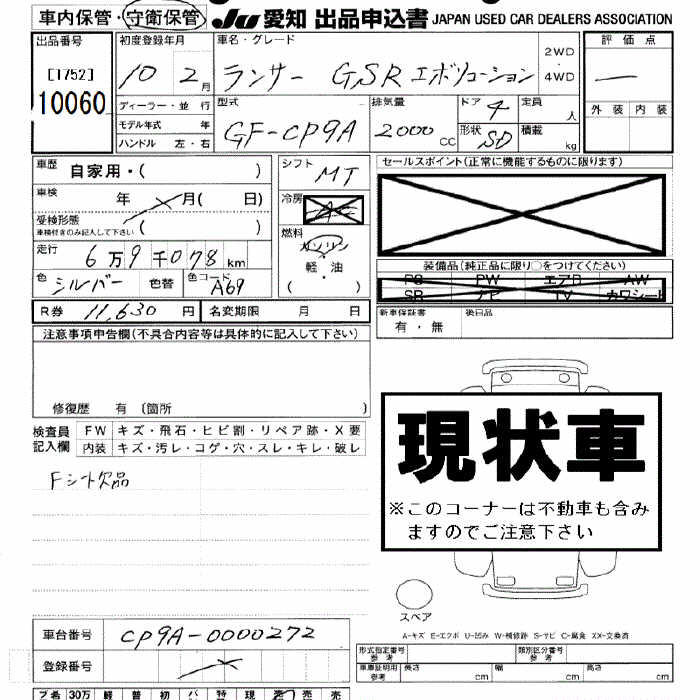 車内保管・守衛保管 JU 愛知 出品申込書 JAPAN USED CAR DEALERS ASSOCIATION
出品番号 初度登録年月 車名・グレード 2WD ・ 4WD 評価点
[1752] 10 2月 ランサー GSR エボリューション
10060 ディーラー・並 行 型式 排気量 ドア 4 定員 人 外装 内装
モデル年式 年 GF-CP9A 2000 CC 形状 SD 積載 kg
ハンドル 左・右
車歴 自家用・( ) シフト MT セールスポイント(正常に機能するものに限ります)
車検 年 月( 日) 冷房 AC
受検形態 ( )
車検付きのみ記入して下さい 燃料 ガソリン
走行 6万9千078km 軽・油 装備品(純正品に限り○をつけてください)
色 シルバー 色替 色コード A69 ( ) PS PW エアB AW
SR ナビ TV カワシート
R券 11,630 円 名変期限 月 日 新車保証書 後日品
有・無
注意事項申告欄(不具合内容等は具体的に記入して下さい)
修復歴 有 (箇所 )
現状車
※このコーナーは不動車も含み
ますのでご注意下さい
検査員 FW キズ・飛石・ヒビ割・リペア跡・X要
記入欄 内装 キズ・汚レ・コゲ・穴・スレ・キレ・破レ
Fシート欠品
スペア
A-キズ E-エクボ U-凹み W-補修跡 S-サビ C-腐食 XX-交換済
車台番号 CP9A-0000272
形式指定番号 参考 類別区分番号 参考
登録番号 車庫証明用 参考 長さ cm 幅 cm 高さ cm
30万 軽 普 初 現 売 売 売